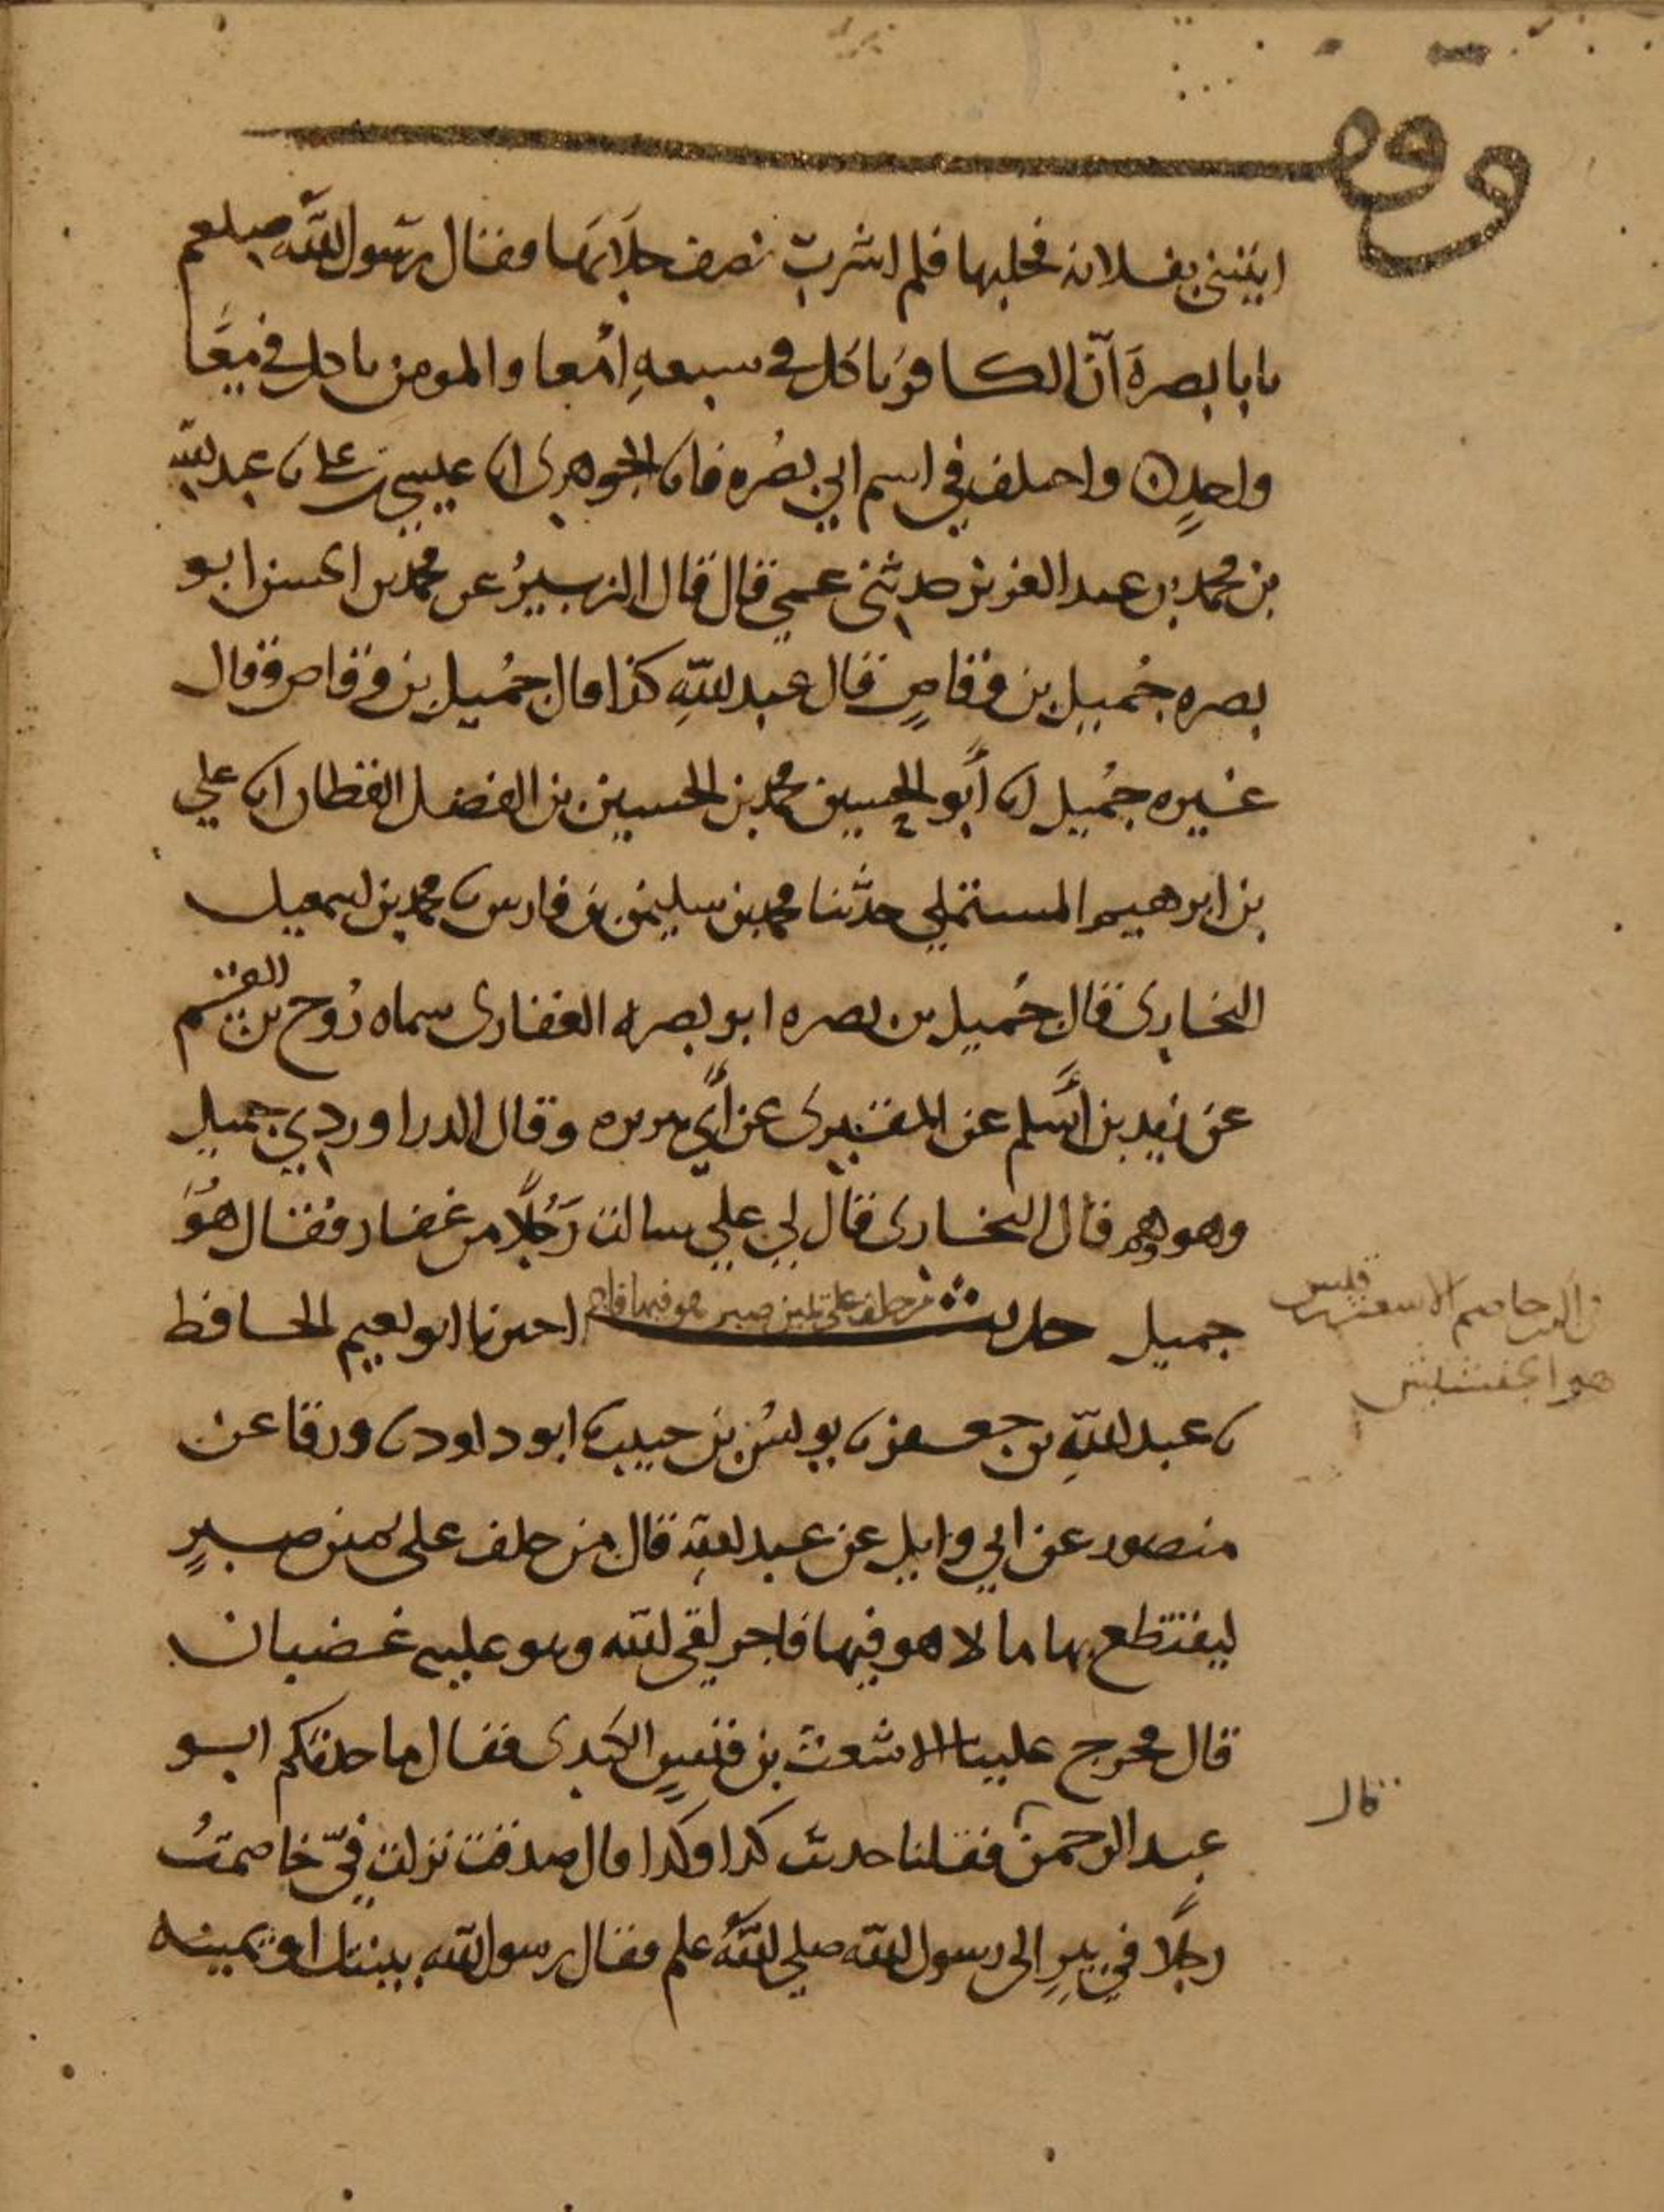 وقف
ايتني بفلانة فحلبها فلم اشرب نصف حلابها فقال رسول الله صلعم
يابا بصرة انّ الكافر ياكل في سبعةِ امعا والمومن ياكل في مِعًا
واحدٍ واختلف في اسم ابي بصره فانا الجوهري انا عيسى بن علي نا عبد الله
بن محمد بن عبد العزيز حدثني عمي قال قال الزبير عن محمد بن الحسن ابو
بصره جُميل بن وقاصٍ قال عبد اللهِ كذا قال جُميل بن وقاص وقال
غيره جُميل انا أبو الحسين محمد بن الحسين بن الفضل القطان انا علي
بن ابرهيم المستملي حدّثنا محمد بن سليمن بن فارس نا محمد بن اسمعيل
البخاري قال حُميل بن بصره ابو بصره الغفاري سماه رَوح بن القسم
عن زيد بن أسلم عن المقبري عن أبي هريره وقال الدراوردي جميل
وهو وهم قال البخاري قال لي علي سالت رَجُلًا من غفار فقال هُوَ
جميل حديث من حلف على يمين صبر هو فيها فاجر اخبرنا ابو نعيم الحافظ
نا عبد اللهِ بن جعفر نا يونس بن حبيب نا ابو داود نا ورقا عن
منصور عن ابي وايل عن عبد اللهِ قال من حلف على يمين صبرٍ
ليقتطع بها مالا هو فيها فاجر لقي الله وهو عليه غضبان
قال فخرج علينا الاشعث بن قيسٍ الكندي فقال ما حدثكم ابو
عبد الرحمن فقلنا حدث كذا وكذا قال صدق نزلت فيّ خاصمتُ
رجلًا في بيرٍ الى رسول الله صلي الله علم فقال رسول الله بينتك او يمينه
الاشعث بن قيس
هو الجفشيش
قال